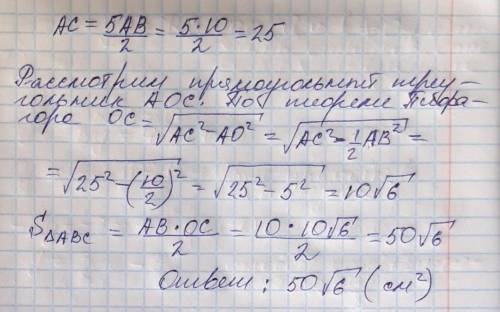 AC = 5AB/2 = 5·10/2 = 25
Рассмотрим прямоугольный треу-
гольник AOC. По теореме Пифа-
гора OC = √(AC² - AO²) = √(AC² - 1/2 AB²) =
= √(25² - (10/2)²) = √(25² - 5²) = 10√6
S△ABC = AB·OC/2 = 10·10√6/2 = 50√6
Ответ: 50√6 (см²)